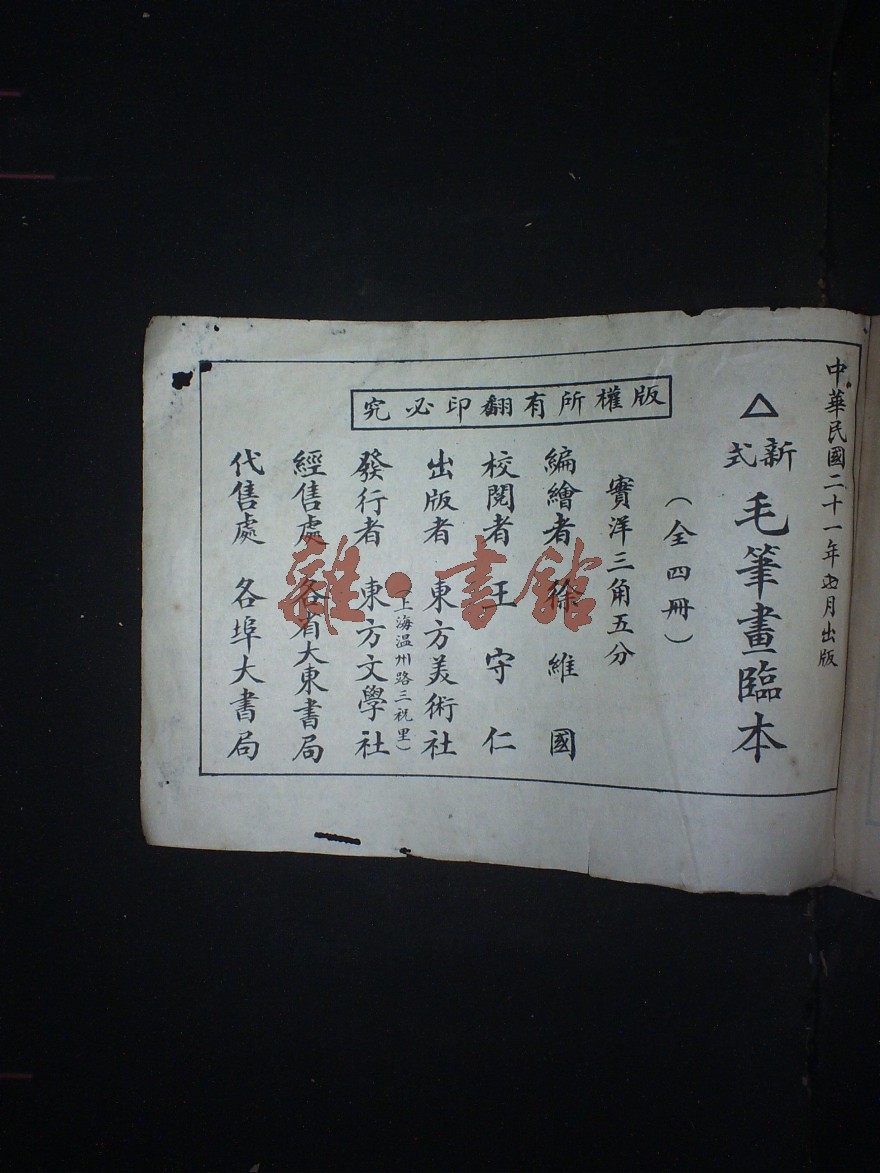 中華民國二十一年四月出版
△新式毛筆畫臨本
(全四冊)
實洋三角五分
版權所有翻印必究
編繪者 徐維國
校閱者 王守仁
出版者 東方美術社
(上海温州路三祝里)
發行者 東方文學社
經售處 各省大東書局
代售處 各埠大書局
雜·書館